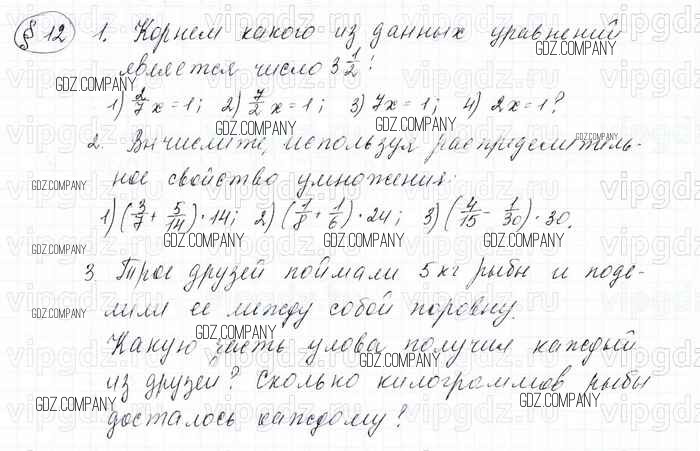 § 12 1. Корнем какого из данных уравнений
является число 3 1/2!
1) 2/7 x = 1; 2) 7/2 x = 1; 3) 7x = 1; 4) 2x = 1?
2. Вычислите, используя распределитель-
ное свойство умножения:
1) (3/7 + 5/14) · 14; 2) (1/8 + 1/6) · 24; 3) (4/15 - 1/30) · 30.
3. Трое друзей поймали 5 кг рыбы и поде-
лили ее между собой поровну.
Какую часть улова получил каждый
из друзей? Сколько килограммов рыбы
досталось каждому?